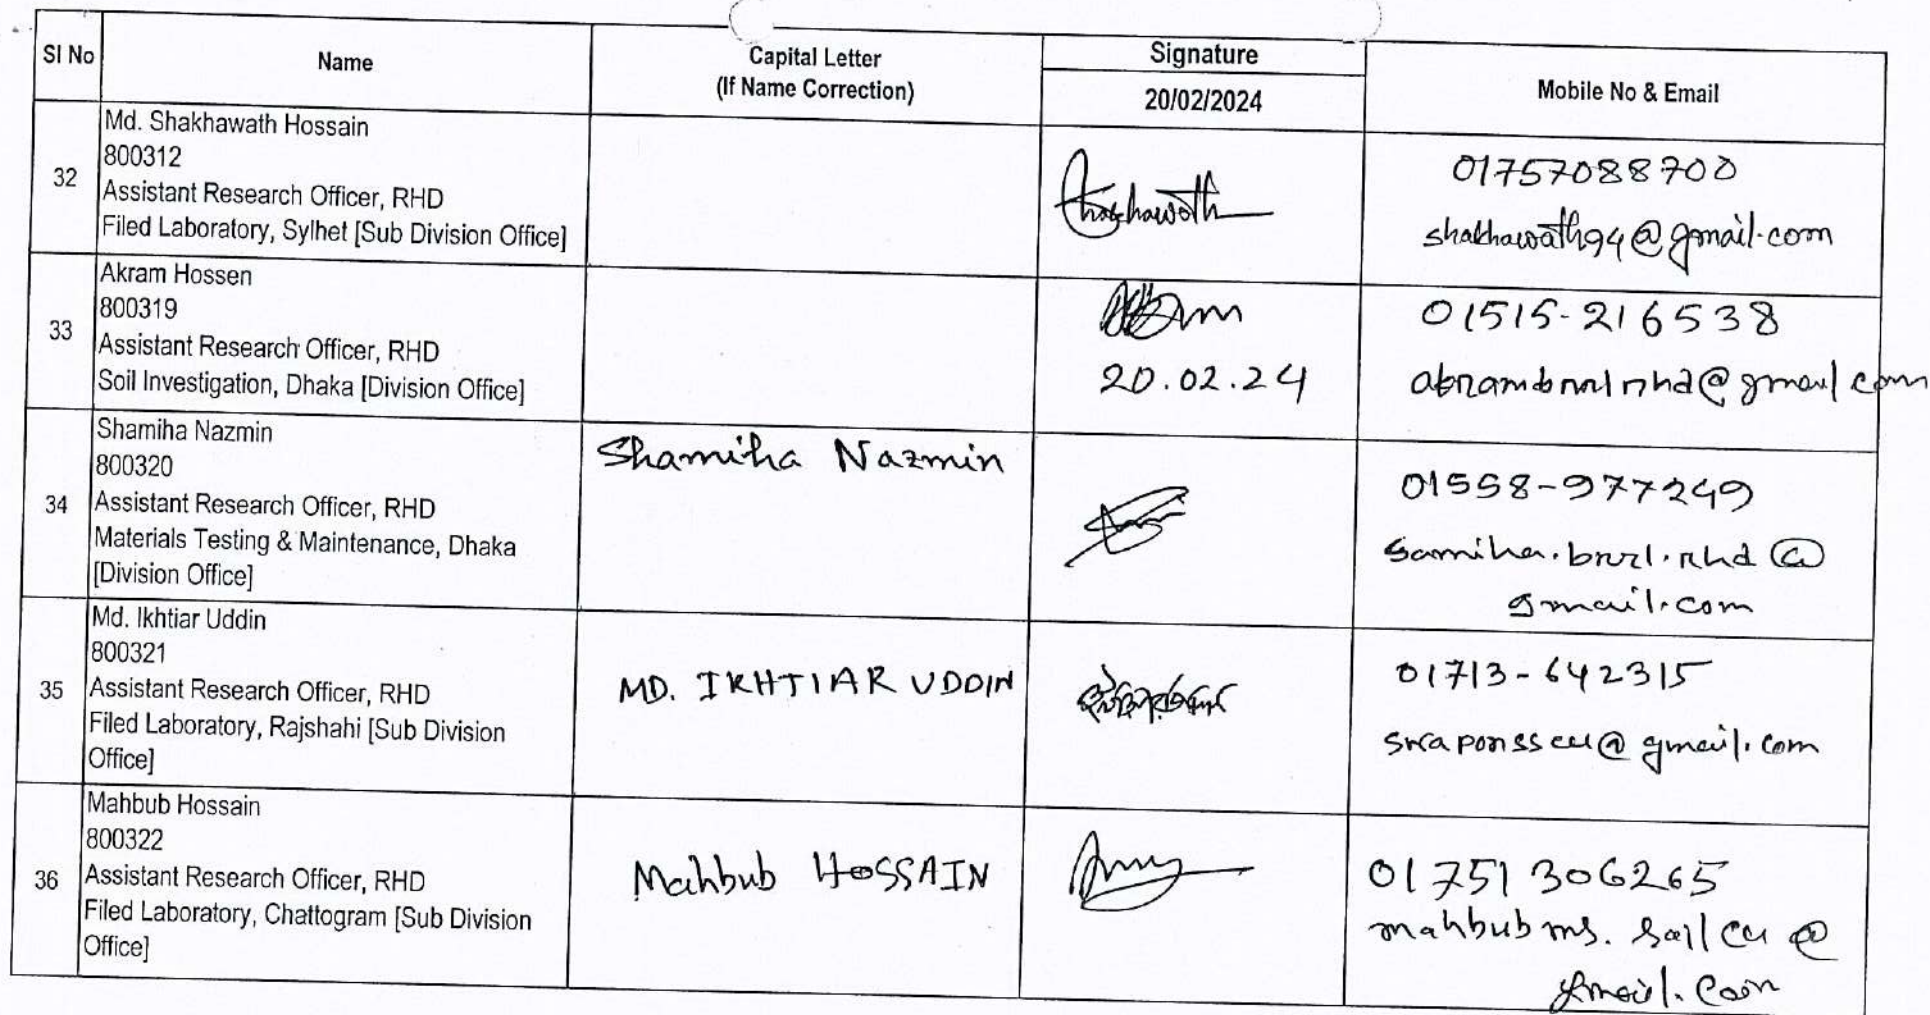 Sl No
Name
Capital Letter
(If Name Correction)
Signature
20/02/2024
Mobile No & Email
32
Md. Shakhawath Hossain
800312
Assistant Research Officer, RHD
Filed Laboratory, Sylhet [Sub Division Office]
01757088700
shakhawath94@gmail.com
33
Akram Hossen
800319
Assistant Research Officer, RHD
Soil Investigation, Dhaka [Division Office]
20.02.24
01515-216538
34
Shamiha Nazmin
800320
Assistant Research Officer, RHD
Materials Testing & Maintenance, Dhaka
[Division Office]
Shamiha Nazmin
01558-977249
samiha.brrl.rhd@
gmail.com
35
Md. Ikhtiar Uddin
800321
Assistant Research Officer, RHD
Filed Laboratory, Rajshahi [Sub Division
Office]
MD. IKHTIAR UDDIN
01713-642315
swaponsscu@gmail.com
36
Mahbub Hossain
800322
Assistant Research Officer, RHD
Filed Laboratory, Chattogram [Sub Division
Office]
Mahbub HOSSAIN
01751306265
mahbubms.soilcu@
gmail.com